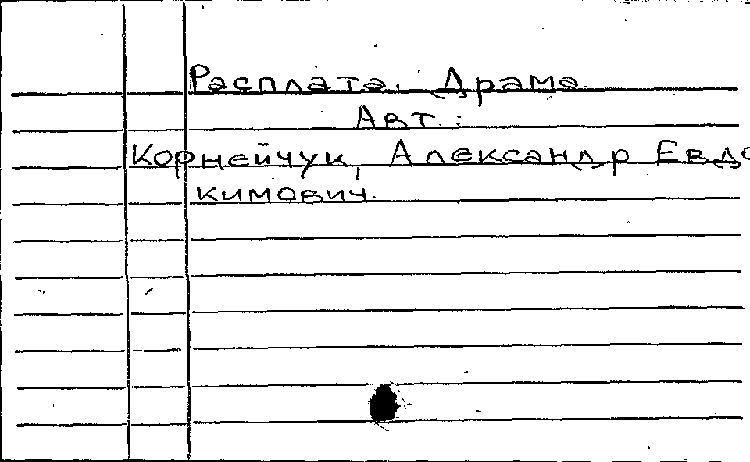 Расплата. Драма
Авт.:
Корнейчук, Александр Евдо
кимович.